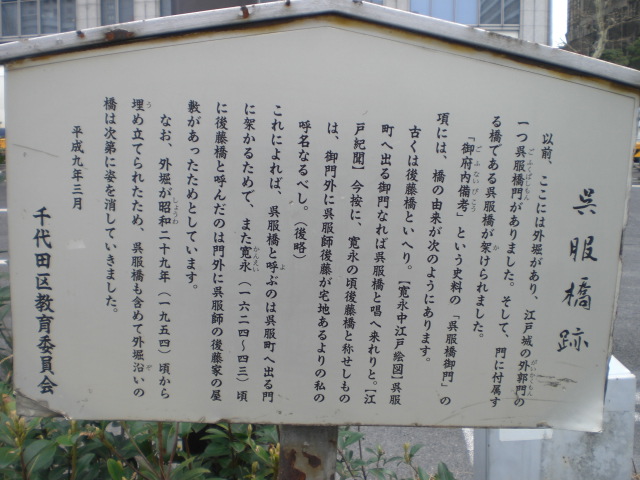 呉服橋跡
以前、ここには外堀があり、江戸城の外郭門の
一つ呉服橋門がありました。そして、門に付属す
る橋である呉服橋が架けられました。
「御府内備考」という史料の「呉服橋御門」の
項には、橋の由来が次のようにあります。
古くは後藤橋といへり。【寛永中江戸絵図】呉服
町へ出る御門なれば呉服橋と唱へ来れりと。【江
戸紀聞】今按に、寛永の頃後藤橋と称せしもの
は、御門外に呉服師後藤が宅地あるよりの私の
呼名なるべし。（後略）
これによれば、呉服橋と呼ぶのは呉服町へ出る門
に架かるためで、また寛永（一六二四～四三）頃
に後藤橋と呼んだのは門外に呉服師の後藤家の屋
敷があったためとしています。
なお、外堀が昭和二十九年（一九五四）頃から
埋め立てられたため、呉服橋も含めて外堀沿いの
橋は次第に姿を消していきました。
平成九年三月
千代田区教育委員会